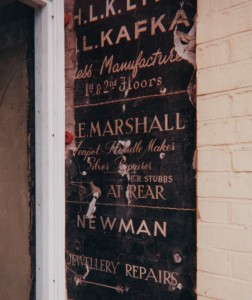 H.L.K.LY
L.KAFKA
ess Manufacture
1st & 2nd Floors
E.MARSHALL
Teapot Handle Maker
Silver Repairer
E.R STUBBS
AT REAR
NEWMAN
JEWELLERY REPAIRS